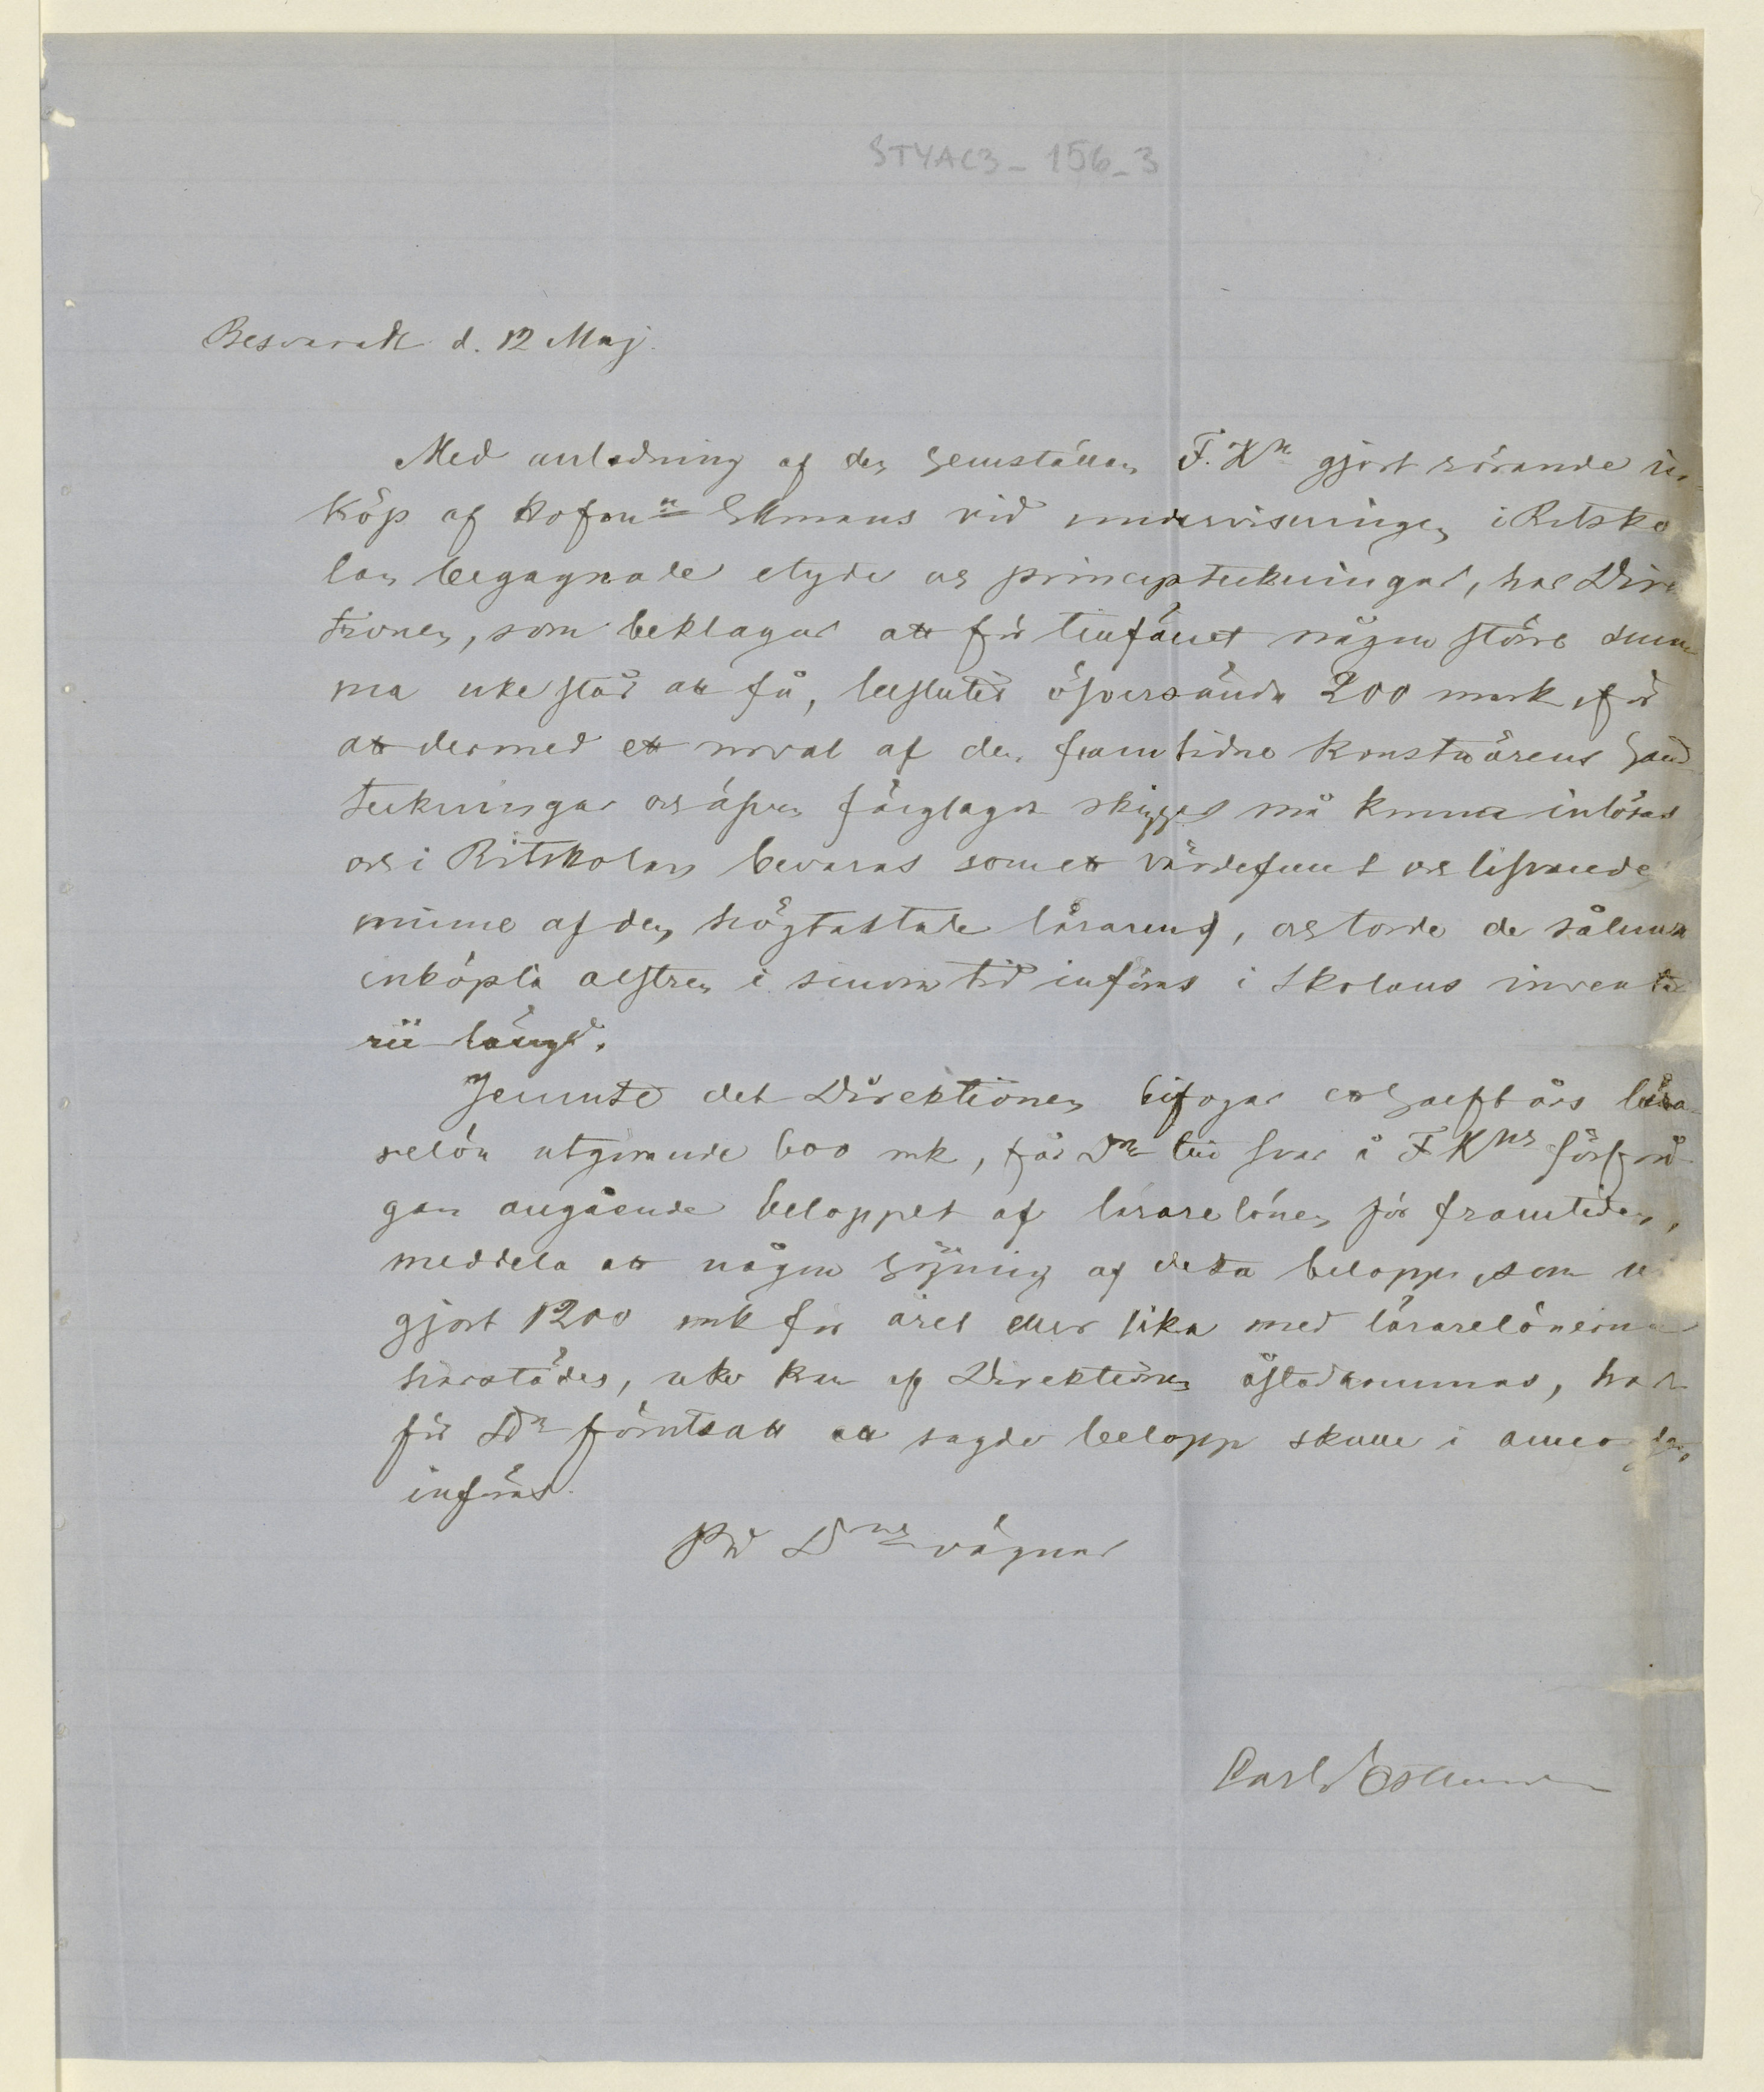 STYAC3_156_3
Besvaradt d. 12 Maj.
Med anledning af den hemställan F. Kn gjort rörande in-
köp af Hofm:n Ekmans vid undervisningen i Ritsko
lan begagnade etyder och principteckningar, har Direk
tionen, som beklagar att för tillfället någon större sum
ma icke står att få, beslutit öfversända 200 mark, för
att dermed ett urval af den framlidne konstnärens hand
teckningar och äfven färglagda skizzer må kunna inlösas
och i Ritskolan bevaras som ett värdefullt och lifvande
minne af den högtaktade läraren, och torde de sålunda
inköpta alstren i sinom tid införas i Skolans inventa
rii längd.
Jemnte det Direktionen bifogar ett halft års lära-
relön utgörande 600 mk, får Dn till svar å F Kns förfrå
gan angående beloppet af lärarelönen för framtiden,
meddela att någon höjning af detta belopp, som u
gjort 1200 mk för året eller lika med lärarelönerna
härstädes, icke kan af Direktionen åstadkommas, har
för Dn förutsatt att sagde belopp skulle i
införas.
På Dns vägnar
Carl